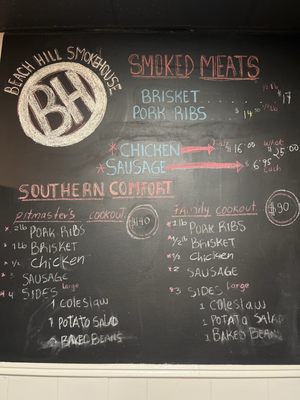 BEACH HILL SMOKEHOUSE
BH
SMOKED MEATS
BRISKET $17
PORK RIBS $14
*CHICKEN 1/2 $16.00 WHOLE $25.00
*SAUSAGE $6.95 each
SOUTHERN COMFORT
PITMASTER'S COOKOUT $140
* 2 lb PORK RIBS
* 1 lb BRISKET
* 1/2 CHICKEN
SAUSAGE
* 4 SIDES Large
1 COLESLAW
1 POTATO SALAD
BAKED BEANS
FAMILY COOKOUT $90
* 1 lb PORK RIBS
* 1/2 lb BRISKET
* 1/2 CHICKEN
* 2 SAUSAGE
* 3 SIDES Large
1 COLESLAW
1 POTATO SALAD
1 BAKED BEANS